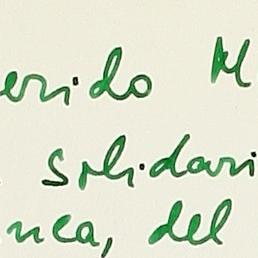 erido M
solidari
nca, del